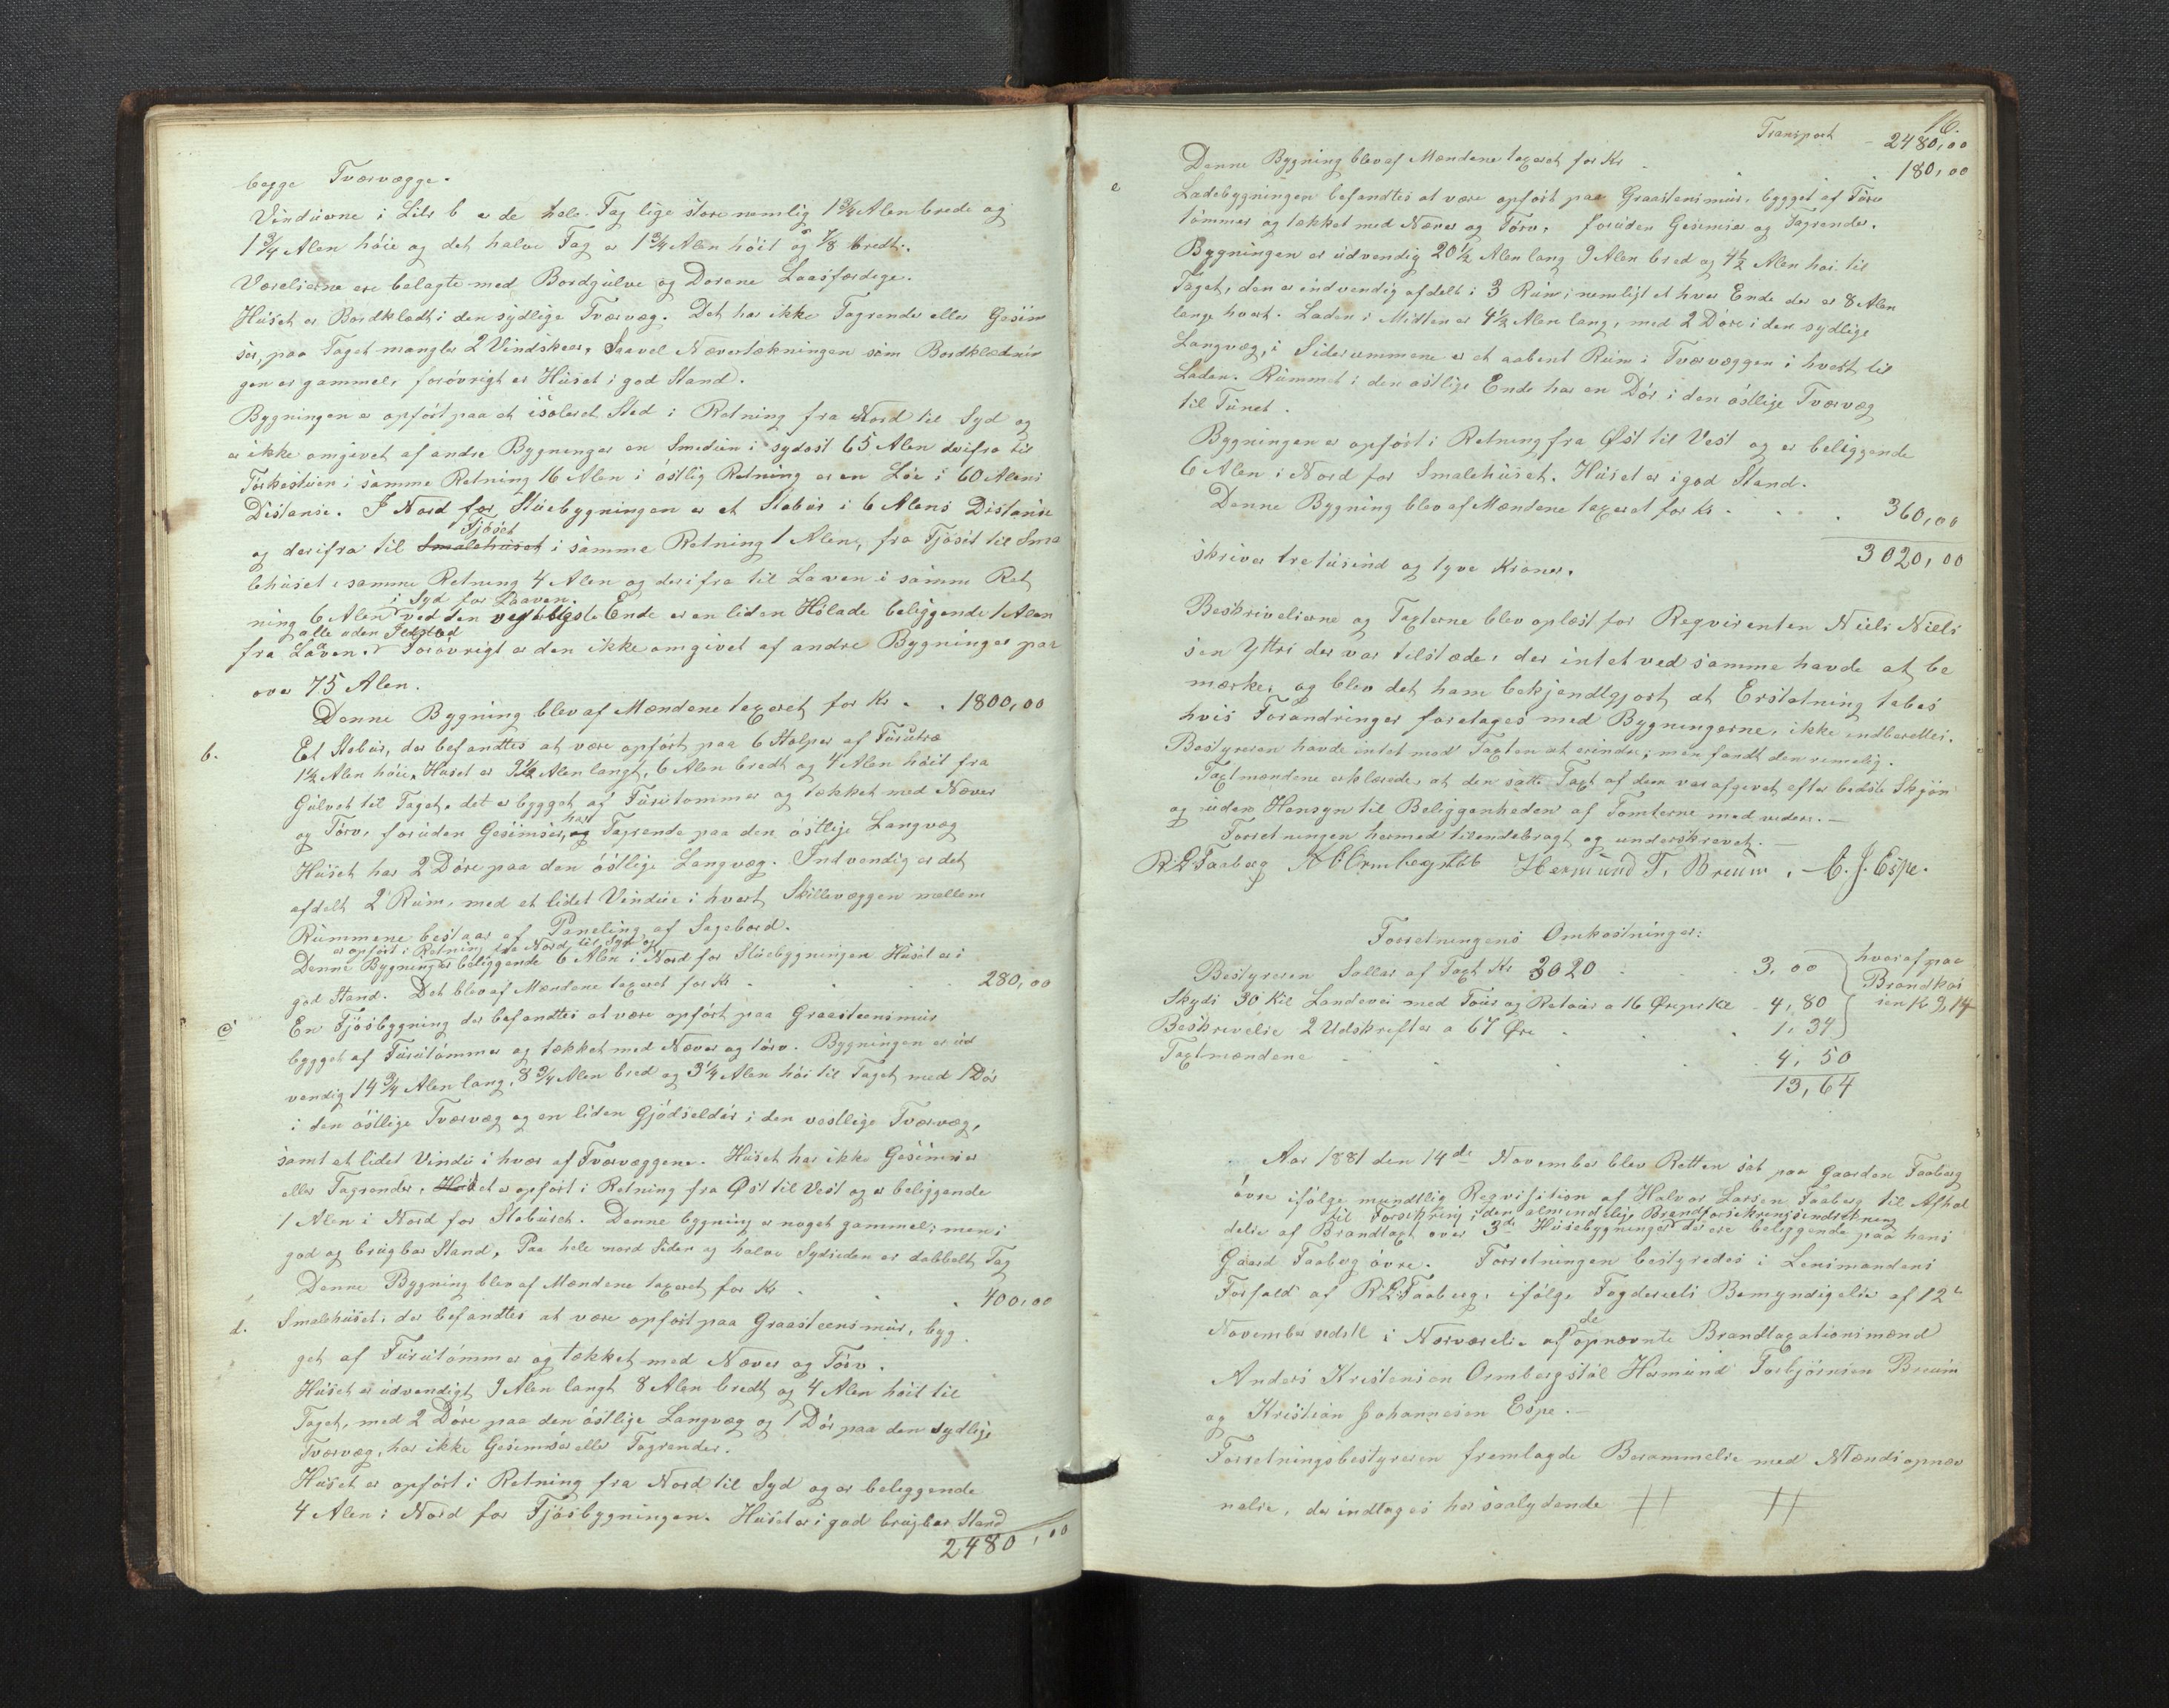 begge Tværvægge.
Vinduerne i Litr b er de hele Fag lige store nemlig 1 3/4 Alen brede og
1 3/4 Alen høie og det halve Fag er 1 3/4 Alen høit og 7/8 bredt.
Værelserne ere belagte med Bordgulve og Dørene Laasfærdige.
Huset er Bordklædt i den sydlige Tværvæg. Det har ikke Tagrender eller Gesim
ser, paa Taget mangler 2 Vindskeer, Saavel Nævertækningen som Bordklædnin
gen er gammel, forøvrigt er Huset i god Stand.
Bygningen er opført paa et isoleret Sted i Retning fra Nord til Syd og
er ikke omgivet af andre Bygninger en Smedien i sydost 65 Alen derifra til
Tørkestuen i samme Retning 16 Alen i østlig Retning er en Løe i 60 Alens
Distanse. I Nord for Stuebygningen er et Stabur i 6 Alens Distanse
og derifra til Smalehuset Fjøset i samme Retning 1 Alen, fra Fjøset til Sma
lehuset i samme Retning 4 Alen og derifra til Laaven i samme Ret
ning 6 Alen i Syd for Laaven. ved den vestligste Ende er en liden Hølade beliggende 1 Alen
fra Laaven. alle uden Ildsted Forøvrigt er den ikke omgivet af andre Bygninger paa
over 75 Alen.
Denne Bygning blev af Mændene taxeret for Kr . . 1800,00
b. Et Stabur, der befandtes at være opført paa 6 Stolper af Furutræ
1 1/2 Alen høie, Huset er 9 1/2 Alen langt, 6 Alen bredt og 4 Alen høit fra
Gulvet til Taget. det er bygget af Furutømmer og tækket med Næver
og Tørv, foruden Gesimser, og har Tagrende paa den østlige Langvæg
Huset har 2 Døre paa den østlige Langvæg. Indvendig er det
afdelt 2 Rum, med et lidet Vindue i hvert Skillevæggen mellem
Rummene bestaar af Paneling af Sagebord.
er opført i Retning fra Nord til Syd og
Denne Bygning er beliggende 6 Alen i Nord for Stuebygningen Huset er i
god Stand. Det blev af Mændene taxeret for Kr . . . 280,00
c En Fjøsbygning der befandtes at være opført paa Graasteensmur
bygget af Furutømmer og tækket med Næver og tørv. Bygningen er ud
vendig 14 3/4 Alen lang, 8 3/4 Alen bred og 3 1/4 Alen høi til Taget med 1 Dør
i den østlige Tværvæg og en liden Gjødseldør i den vestlige Tværvæg,
samt et lidet Vindu i hver af Tværvæggene. Huset har ikke Gesimser
eller Tagrender, Huset er opført i Retning fra Øst til Vest og er beliggende
1 Alen i Nord for Staburet. Denne bygning er noget gammel; men i
god og brugbar Stand, Paa hele nord Siden og halve Sydsiden er dobbelt Tag
Denne Bygning blev af Mændene taxeret for Kr . . . 400,00
d. Smalehuset, der befandtes at være opført paa Graasteensmur, byg
get af Furutømmer og tækket med Næver og Tørv.
Huset er udvendigt 9 Alen langt 8 Alen bredt og 4 Alen høit til
Taget, med 2 Døre paa den østlige Langvæg og 1 Dør paa den sydlige
Tværvæg, har ikke Gesimser eller Tagrender.
Huset er opført i Retning fra Nord til Syd og er beliggende
4 Alen i Nord for Fjøsbygningen. Huset er i god brugbar Stand
2480,00
16.
Transport - 2480,00
Denne Bygning blev af Mændene taxeret for Kr . . . 180,00
e Ladebygningen befandtes at være opført paa Graastensmur, bygget af Furu
tømmer og tækket med Næver og Tørv, foruden Gesimser og Tagrender.
Bygningen er udvendig 20 1/2 Alen lang 9 Alen bred og 4 1/2 Alen høi til
Taget, den er indvendig afdelt i 3 Rum, nemligt et hver Ende der er 8 Alen
lange hvert. Laden i Midten er 4 1/2 Alen lang, med 2 Døre i den sydlige
Langvæg, i Siderummene er et aabent Rum i Tværvæggen i hvert til
Laden. Rummet i den østlige Ende har en Dør i den østlige Tværvæg
til Tunet.
Bygningen er opført i Retning fra Øst til Vest og er beliggende
6 Alen i Nord for Smalehuset. Huset er i god Stand.
Denne Bygning blev af Mændene taxeret for Kr - . . . 360,00
3020,00
skriver tretusind og tyve Kroner.
Beskrivelserne og Taxterne blev oplæst for Reqvirenten Niels Niels
sen Yttri der var tilstæde, der intet ved samme havde at be
mærke, og blev det ham bekjendtgjort at Erstatning tabes
hvis Forandringer foretages med Bygningerne, ikke indberettes.
Bestyreren havde intet mod Taxten at erindre; men fandt den rimelig.
Taxtmændene erklærede, at den satte Taxt af dem var afgivet efter bedste Skjøn
og uden Hensyn til Beliggenheden af Tomterne med videre. —
Forretningen hermed tilendebragt og underskrevet. —
R L Faaberg A K Ormbergstøl Hermund T. Breum, C. J. Espe.
Forretningens Omkostninger:
Bestyreren Sallær af Taxt Kr 3020 . . . 3,00 hvoraf paa
Skyds 30 Kil Landevei med Tour og Retour a 16 Ørepr Kil - 4,80 Brandkas
Beskrivelse 2 Udskrifter a 67 Øre . . 1,34 sen Kr 9,14
Taxtmændene - . . . 4,50
13,64
Aar 1881 den 14de November blev Retten sat paa Gaarden Faaberg
øvre ifølge mundtlig Reqvisition af Halvor Larsen Faaberg til Afhol
til Forsikring i den almindelige Brandforsikringsindretning
delse af Brandtaxt over 3de Husebygninger der ere beliggende paa hans
Gaard Faaberg øvre. Forretningen bestyredes i Lensmandens
Forfald af R L Faaberg, ifølge Fogderiets Bemyndigelse af 12te
November sidstl i Nærværelse af de opnævnte Brandtaxationsmænd
Anders Kristensen Ormbergstøl Hermund Torbjørnsen Breum
og Kristian Johannesen Espe. —
Forretningsbestyreren fremlagde Berammelse med Mændsopnæv
nelse, der indtages her saalydende